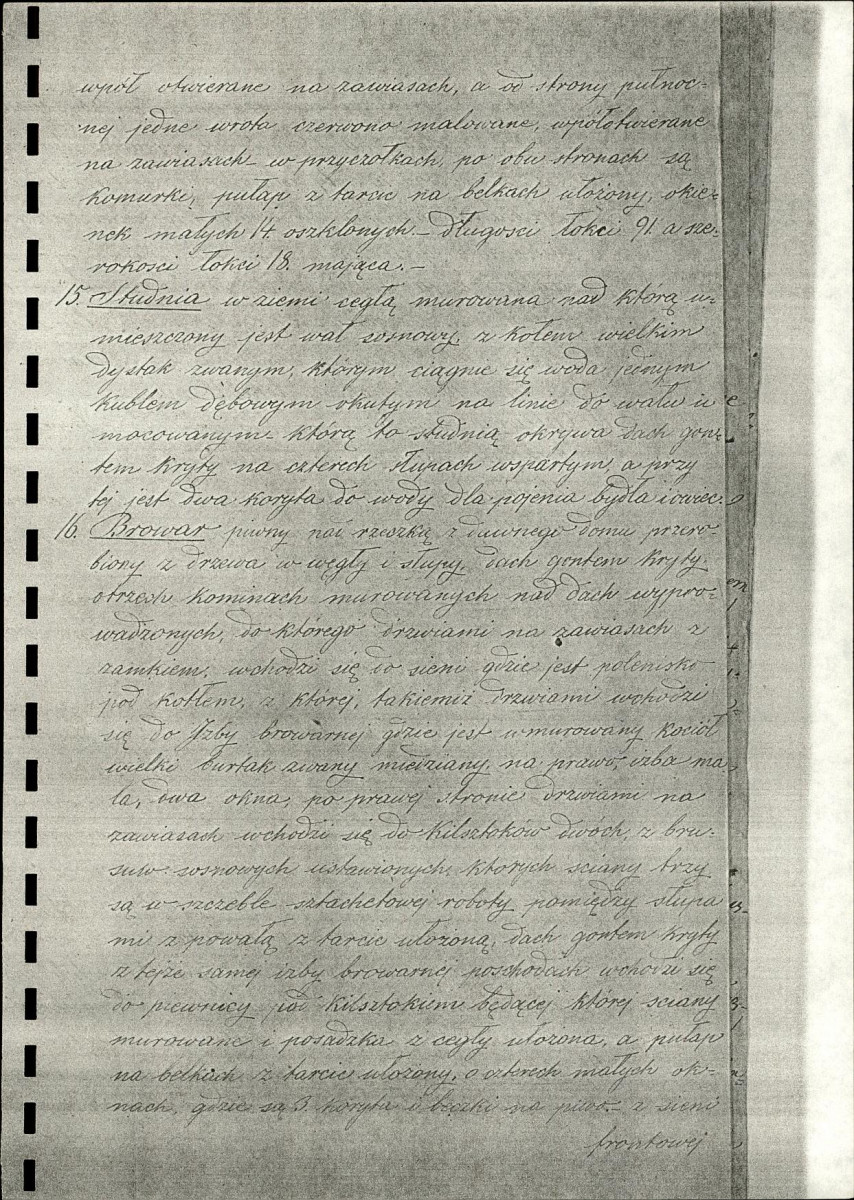 wpół otwierane na zawiasach, a od strony pułnoc-
nej jedne wrota czerwono malowane, wpółotwierane
na zawiasach w przyczołkach, po obu stronach są
Komurki, pułap z tarcic na belkach ułożony, okie-
nek małych 14. oszklonych. – Długości łokci 91. a sze-
rokości łokci 18. mająca. –
15. Studnia w ziemi cegłą murowana nad którą u-
mieszczony jest wał sosnowy, z kołem wielkim
dystak zwanym, którym ciągnie się woda jednym
Kubłem dębowym okutym na linie do wału u-
mocowanym – którą to studnią okrywa dach gon-
tem Kryty na czterech słupach wspartym, a przy
tej jest dwa koryta do wody dla pojenia bydła i owiec.
16. Browar piwny nad rzeczką z dawnego domu przero-
biony z drzewa w węgły i słupy, dach gontem Kryty
o trzech Kominach murowanych nad dach wypro-
wadzonych, do którego drzwiami na zawiasach z
zamkiem, wchodzi się do sieni gdzie jest polenisko
pod kotłem, z której, takiemiż drzwiami wchodzi
się do Izby browarnej gdzie jest wmurowany Kocioł
wielki burtak zwany miedziany, na prawo, izba ma-
ła, dwa okna, po prawej stronie drzwiami na
zawiasach wchodzi się do Kilsztoków dwóch, z bru-
suw sosnowych ustawionych, ktorych sciany trzy
są w szczeble sztachetowej roboty pomiędzy słupa
mi z powałą z tarcic ułożoną, dach gontem Kryty
z tejże samej izby browarnej poschodach wchodzi się
do piewnicy pod Kilsztokiem będącej której sciany
murowane i posadzka z cegły ułożona, a pułap
na belkach z tarcic ułożony, o czterech małych ok-
nach, gdzie są 3 koryta i beczki na piwo – z sieni
frontowej